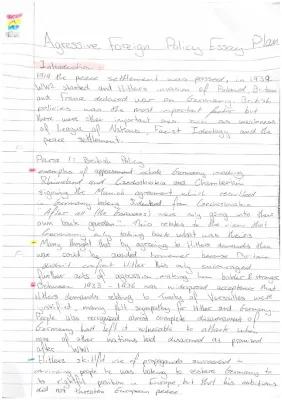 Agressive Foreign Policy Essay Plan
Introduction:
1919 the peace settlement was passed, in 1939
WW2 started and Hitlers invasion of Poland. Britain
and France declared war on Germany. British
policies was the most important factor but
there were other important ones such as weakness
of League of Nations, Facist Ideology and the
peace settlement.
Para 1: British Policy
examples of appeasement include Germany invading
Rhineland and Czechoslovakia and Chamberlain
signing the Munich agreement which resulted
Germany taking Sudetenland from Czechoslovakia
After all (the Germans) were only going into their
own back garden. This relates to the view that
Germany was only taking back what was theirs
Many thought that by agreeing to Hitlers demands then
war could be avoided however because Britain
didn't confront Hitler this only encouraged
further acts of aggression making him stronger
Between 1933 - 1936 was widespread acceptance that
Hitlers demands relating to Treaty of Versailles were
justified, many felt sympathy for Hitler and Germany
People also recognised almost complete disarmament of
Germany had left it vulnerable to attack when
none of other nations had disarmed as promised
after WW1
Hitlers skilful use of propaganda succeeded in
convincing people he was looking to restore Germany to
its rightful position in Europe, but that his ambitions
did not threaten European peace.